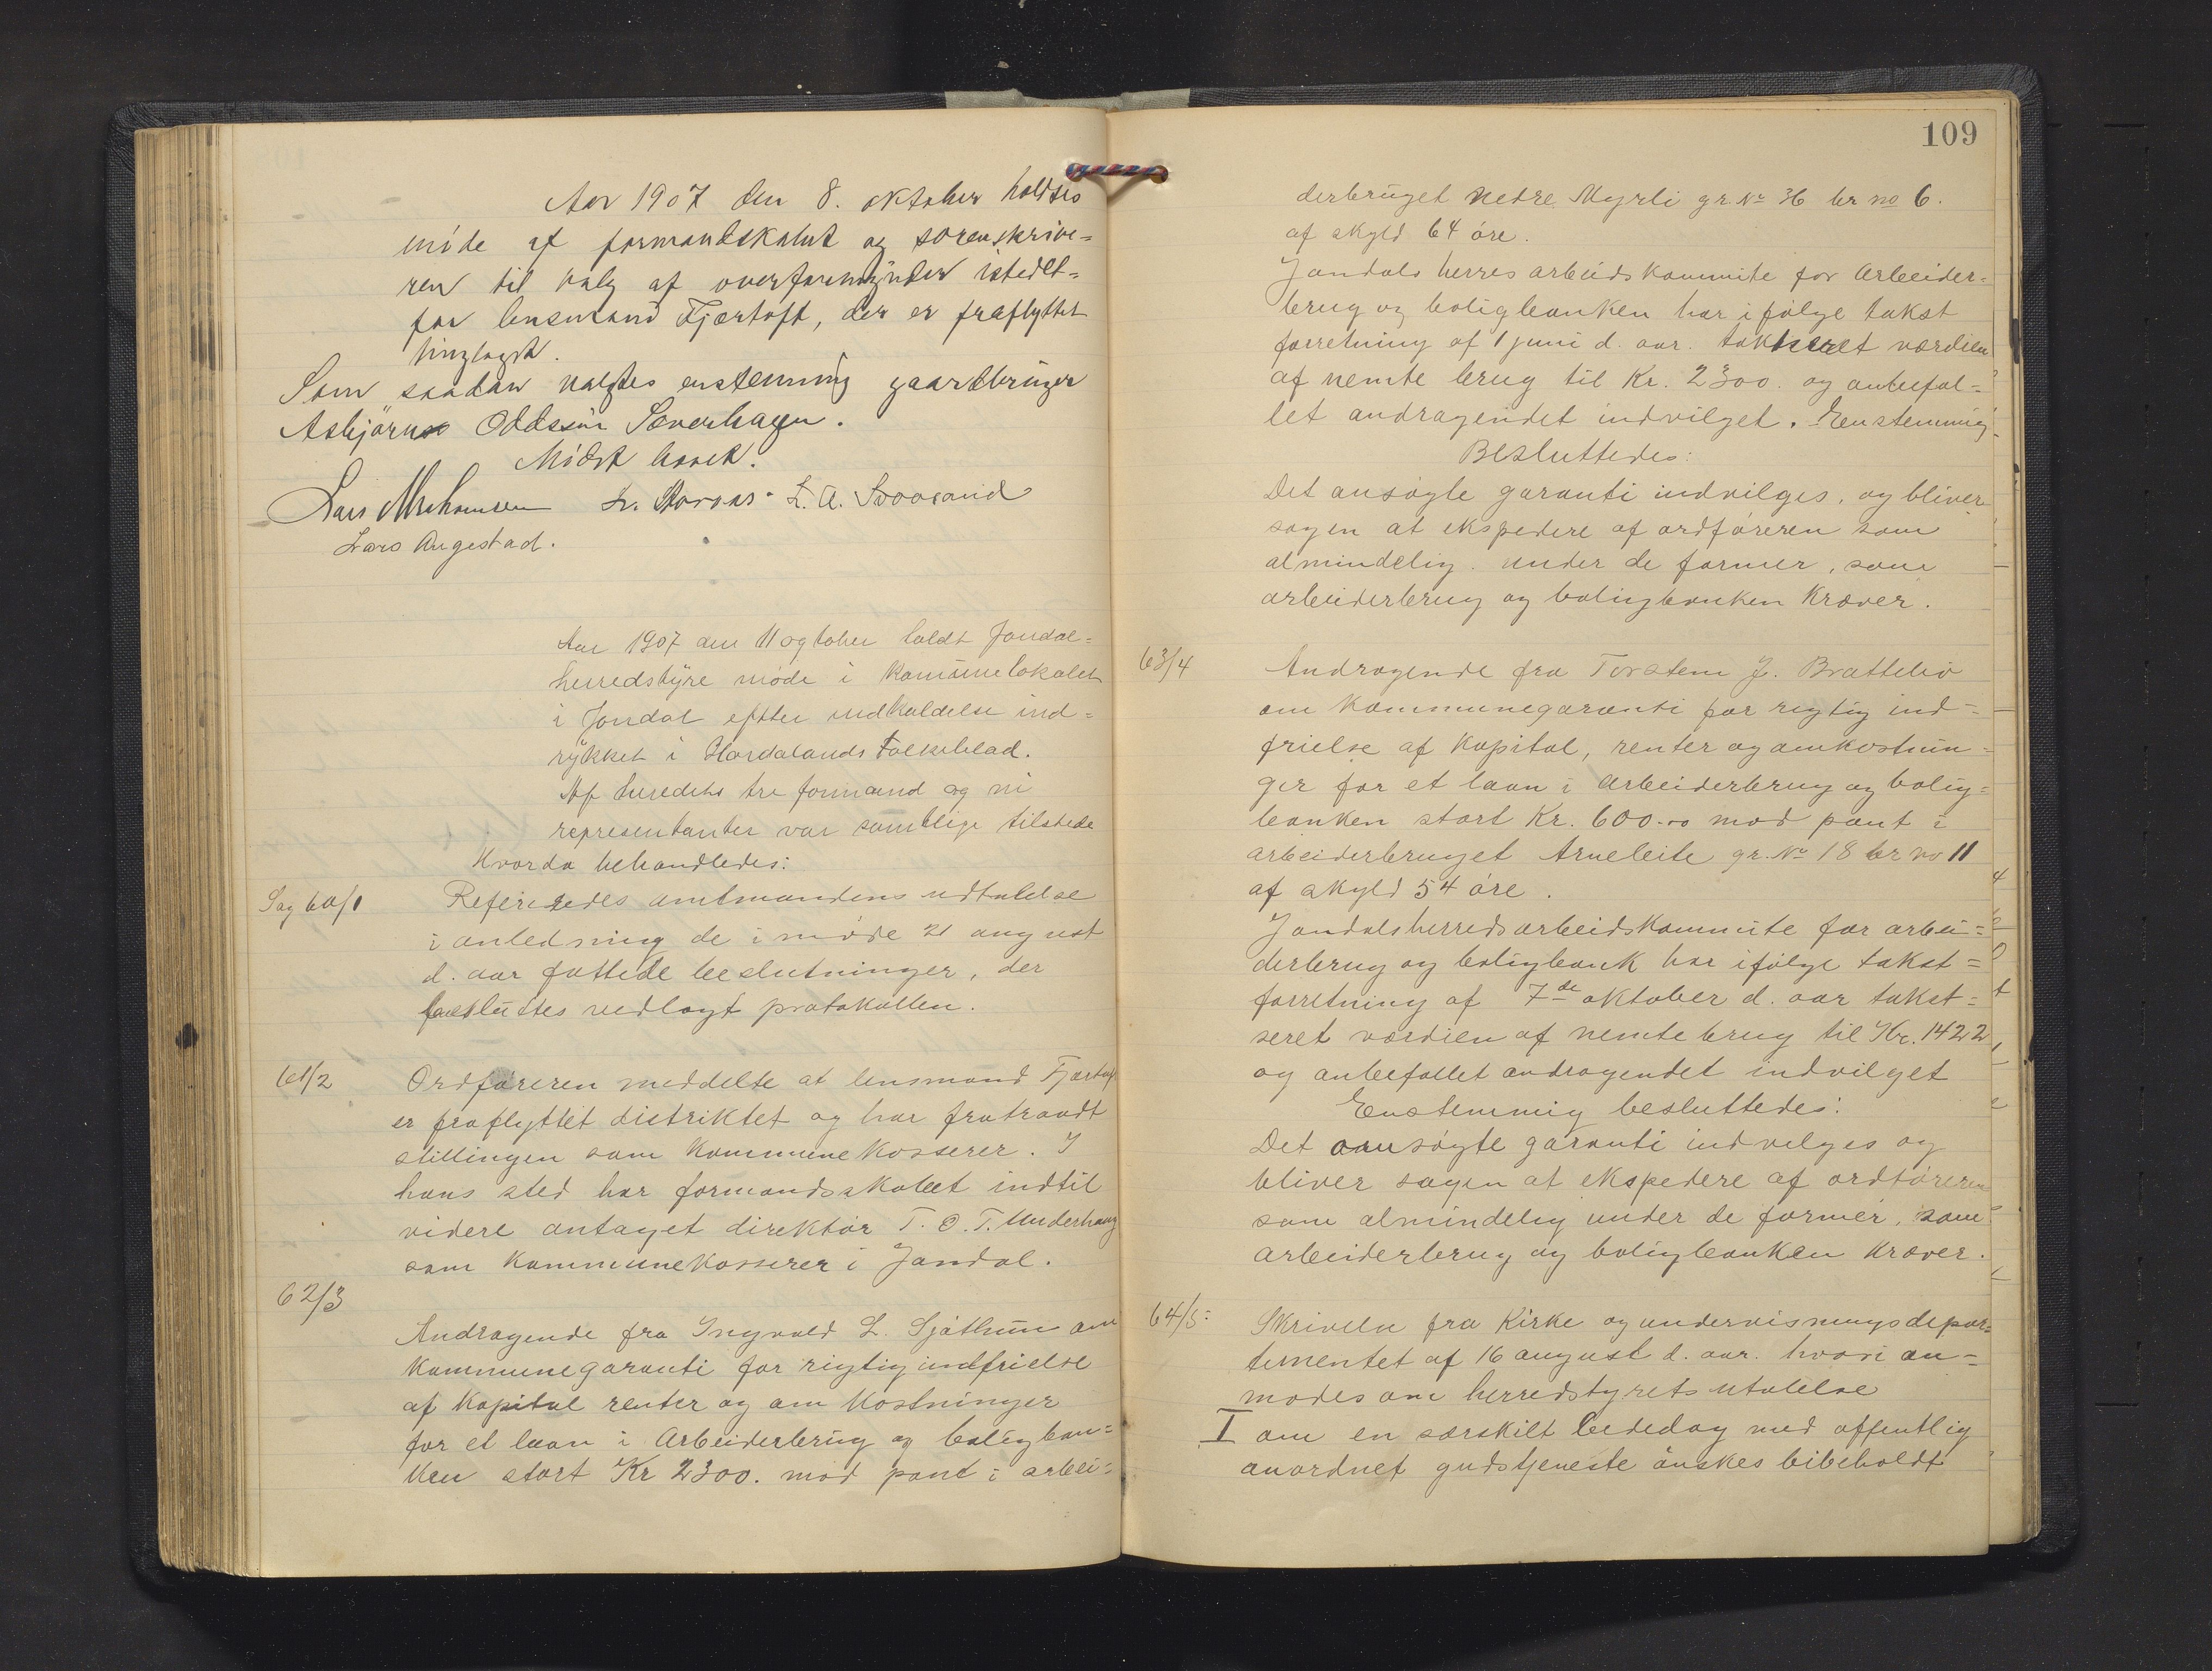 Aar 1907 den 8. oktober holdtes
möde af formandskabet og sorenskrive=
ren til valg af overformynder istedet=
for lensmand Fjærtoft, der er fraflyttet
tinglaget.
Som saadan valgtes enstemmig gaardbruger
Asbjørn Oddsön Sæverhagen.
Mödet hævet.
Lars Aug̣estad.
Aar 1907 den 11 ogtober holdt Jondal=
herredstyre möde i Komunelokalet
i Jondal efter indkaldelse ind=
rykket i Hordalands Folkeblad.
Af heredets tre formænd og ni
representanter var samtlige tilstede
Hvorda behandledes:
Sag 60/1 Refereredes amtmandens udtalelse
i anledning de i möde 21 august
d. aar fattede beslutninger, der
besluttes vedlagt protokollen.
61/2 Ordföreren meddelte at lensmand Fjærtoft
er fraflyttet distriktet og har fratraadt
stillingen som Kommunekasserer. I
hans sted har formandsskabet indtil
videre antaget direktör T. O. T. Underhaug
som Kommunekasserer i Jondal.
62/3
Andragende fra Ingvald L. Sjåthun om
Kommunegaranti for rigtig indfrielse
af Kapital renter og om Kostninger
for et laan i Arbeiderbrug og boligban=
ken stort Kr 2300. mod pant i arbei=
109
derbruget nedre Myrli gr. No 36 br no 6.
af skyld 64 öre.
Jondals herres arbeidskommite for Arbeider=
brug og boligbanken har i fölge takst
forretning af 1 juni d. aar. taksteret værdien
af nemte brug til Kr. 2300. og anbefal=
let andragendet indvilget. Enstemmig
Besluttedes:
Det ansögte garanti indvilges, og bliver
sagen at ekspedere af ordföreren som
almindelig. under de former, som
arbeiderbrug og boligbanken Kræver.
63/4 Andragende fra Torstein J. Brattebö
om Kommunegaranti for rigtig ind=
frielse af Kapital, renter og omkostnin=
ger for et laan i arbeiderbrug og bolig=
banken stort Kr. 600.00 mod pant i
arbeiderbruget Arneleite gr. No 18 br no 11
af skyld 54 öre.
Jondalsherredsarbeidskommite for arbei=
derbrug og boligbank har ifölge takst=
forretning af 7de oktober d. aar takst=
seret værdien af nemte brug til Kr. 1422
og anbefallet andragendet indvilget
Enstemmig besluttedes:
Det ansögte garanti indvelges og
bliver sagen at ekspedere af ordföreren
som almindelig under de former, som
arbeiderbrug og boligbanken Kræver.
64/5: Skrivelse fra Kirke og undervisningsdepar=
tementet af 16 august d. aar. hvori an=
modes om herredstyrets utalelse
I om en særskilt bededag med offentlig
anordnet gudstjeneste önskes bibeholdt